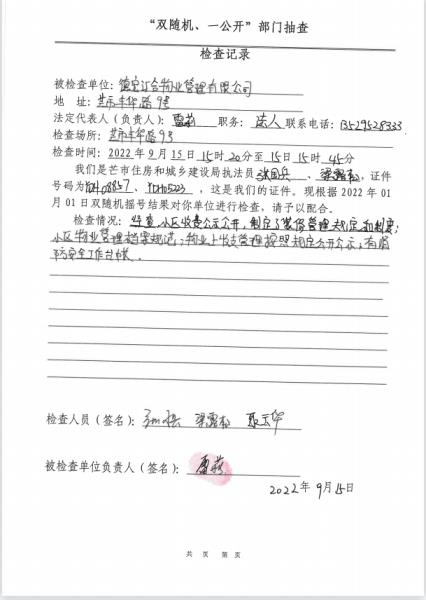 “双随机、一公开”部门抽查
检查记录
被检查单位：德宏汇合物业管理有限公司
地 址：芒市丰华路9号
法定代表人（负责人）：雷莉 职务：法人 联系电话：13529528333
检查场所：芒市丰华路9号
检查时间：2022年9月15日15时20分至15日15时45分
我们是芒市住房和城乡建设局执法员 、 ，证件
号码为 、 ，这是我们的证件。现根据2022年01
月01日双随机摇号结果对你单位进行检查，请予以配合。
检查情况：经查，小区收费公示公开，制定了装修管理规定和制度；
小区物业管理档案规范；物业上收支管理按照规定公开公示，有消
防安全工作台帐．
检查人员（签名）：
被检查单位负责人（签名）：雷莉
2022年9月15日
共 页 第 页